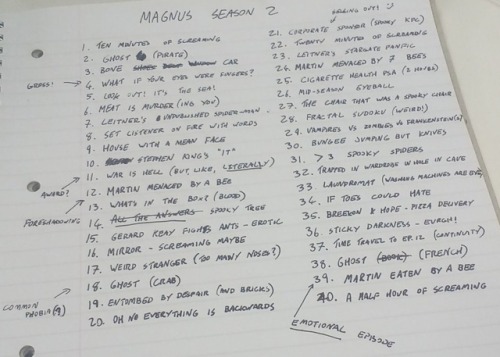 MAGNUS SEASON 2
1. TEN MINUTES OF SCREAMING
2. GHOST (PIRATE)
3. BONE CAR
GROSS!
4. WHAT IF YOUR EYES WERE FINGERS?
5. LOOK OUT! IT'S THE SEA!
6. MEAT IS MURDER (ING YOU)
7. LEITNER'S UNPUBLISHED SPIDER-MAN
8. SET LISTENER ON FIRE WITH WORDS
9. HOUSE WITH A MEAN FACE
10. STEPHEN KING'S "IT"
11. WAR IS HELL (BUT, LIKE, LITERALLY)
AWARD?
12. MARTIN MENACED BY A BEE
13. WHAT'S IN THE BOX? (BLOOD)
FORESHADOWING
14. ALL THE ANSWERS SPOOKY TREE
15. GERARD KEAY FIGHTS ANTS - EROTIC
16. MIRROR - SCREAMING MAYBE
17. WEIRD STRANGER (TOO MANY NOSES?)
18. GHOST (CRAB)
COMMON PHOBIA (?)
19. ENTOMBED BY DESPAIR (AND BRICKS)
20. OH NO EVERYTHING IS BACKWARDS
SELLING OUT! :)
21. CORPORATE SPONSOR (SPOOKY KFC)
22. TWENTY MINUTES OF SCREAMING
23. LEITNER'S STARGATE FANFIC
24. MARTIN MENACED BY 7 BEES
25. CIGARETTE HEALTH PSA (2 HOURS)
26. MID-SEASON EYEBALL
27. THE CHAIR THAT WAS A SPOOKY CHAIR
28. FRACTAL SUDOKU (WEIRD!)
29. VAMPIRES VS ZOMBIES VS FRANKENSTEIN(S)
30. BUNGEE JUMPING BUT KNIVES
31. >3 SPOOKY SPIDERS
32. TRAPPED IN WARDROBE IN HOLE IN CAVE
33. LAUNDROMAT (WASHING MACHINES ARE EVIL)
34. IF TOES COULD HATE
35. BREEKON & HOPE - PIZZA DELIVERY
36. STICKY DARKNESS - EURGH!
37. TIME TRAVEL TO EP.12 (CONTINUITY)
38. GHOST (BOOK) (FRENCH)
39. MARTIN EATEN BY A BEE
40. A HALF HOUR OF SCREAMING
EMOTIONAL EPISODE